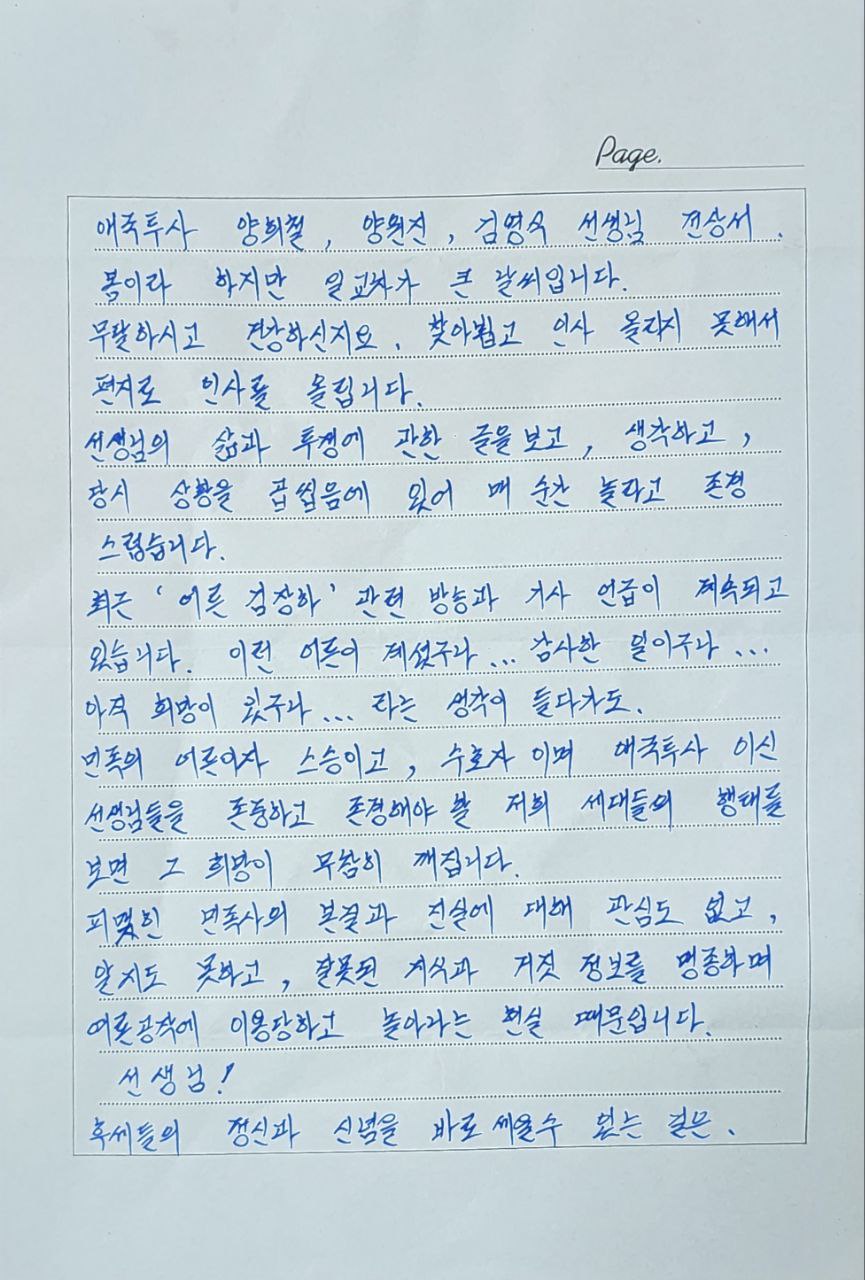 Page.
애국투사 양희철, 양원진, 김영식 선생님 전상서.
봄이라 하지만 일교차가 큰 날씨입니다.
무탈하시고 건강하신지요. 찾아뵙고 인사 올리지 못해서
편지로 인사를 올립니다.
선생님의 삶과 투쟁에 관한 글을 보고, 생각하고,
당시 상황을 곱씹음에 있어 매 순간 놀라고 존경
스럽습니다.
최근 '어른 김장하' 관련 방송과 기사 언급이 계속되고
있습니다. 이런 어른이 계셨구나... 감사한 일이구나...
아직 희망이 있구나... 라는 생각이 들다가도.
민족의 어른이자 스승이고, 수호자 이며 애국투사 이신
선생님들을 존중하고 존경해야 할 저희 세대들의 행태를
보면 그 희망이 무참히 깨집니다.
피맺힌 민족사의 본질과 진실에 대해 관심도 없고,
알지도 못하고, 잘못된 지식과 거짓 정보를 맹종하며
여론공작에 이용당하고 놀아나는 현실 때문입니다.
선생님!
후세들의 정신과 신념을 바로 세울수 있는 길은.